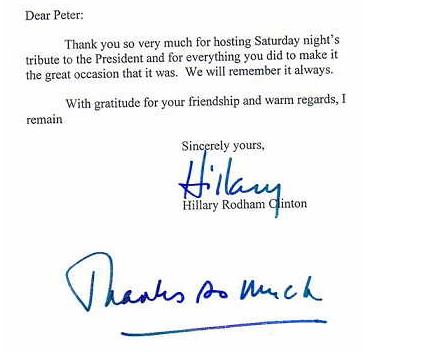 Dear Peter:
Thank you so very much for hosting Saturday night's
tribute to the President and for everything you did to make it
the great occasion that it was.  We will remember it always.
With gratitude for your friendship and warm regards, I
remain
Sincerely yours,
Hillary
Hillary Rodham Clinton
Thanks so much